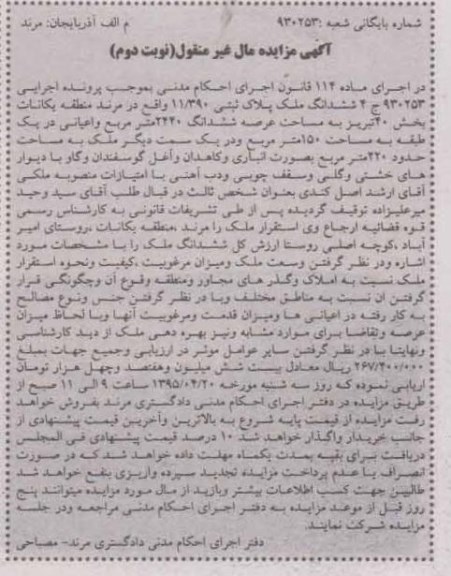 شماره بایگانی شعبه :۹۳۰۲۵۳ م الف آذربایجان: مرند
آگهی مزایده مال غیر منقول(نوبت دوم)
در اجرای ماده ۱۱۴ قانون اجرای احکام مدنی بموجب پرونده اجرایی
۹۳۰۲۵۳ ج ۴ ششدانگ ملک پلاک ثبتی ۱۱/۳۹۰ واقع در مرند منطقه یکانات
بخش ۴۰تبریز به مساحت عرصه ششدانگ ۲۴۴۰متر مربع واعیانی در یک
طبقه به مساحت ۱۵۰متر مربع ودر یک سمت دیگر ملک به مساحت
حدود ۲۲۰متر مربع بصورت انباری وکاهدان وآغل گوسفندان وگاو با دیوار
های خشتی وگلی وسقف چوبی ودب آهنی با امتیازات منصوبه ملکی
آقای ارشد اصل کندی بعنوان شخص ثالث در قبال طلب آقای سید وحید
میرعلیزاده توقیف گردیده پس از طی تشریفات قانونی به کارشناس رسمی
قوه قضائیه ارجاع وی استقرار ملک را مرند ،منطقه یکانات ،روستای امیر
آباد ،کوچه اصلی روستا ارزش کل ششدانگ ملک را با مشخصات مورد
اشاره ودر نظر گرفتن وسعت ملک ومیزان مرغوبیت ،کیفیت ونحوه استقرار
ملک نسبت به املاک وگذر های مجاور ومنطقه وقوع آن وچگونگی قرار
گرفتن آن نسبت به مناطق مختلف وبا در نظر گرفتن جنس ونوع مصالح
به کار رفته در اعیانی ها ومیزان قدمت ومرغوبیت آنها وبا لحاظ میزان
عرصه وتقاضا برای موارد مشابه ونیز بهره دهی ملک از دید کارشناسی
ونهایتا با در نظر گرفتن سایر عوامل موثر در ارزیابی وجمیع جهات بمبلغ
۲۶۷/۴۰۰/۰۰۰ ریال معادل بیست شش میلیون وهفتصد وچهل هزار تومان
اریابی نموده که روز سه شنبه مورخه ۱۳۹۵/۰۴/۲۰ ساعت ۹ الی ۱۱ صبح از
طریق مزایده در دفتر اجرای احکام مدنی دادگستری مرند بفروش خواهد
رفت مزایده از قیمت پایه شروع به بالاترین وآخرین قیمت پیشنهادی از
جانب خریدار واگذار خواهد شد ۱۰ درصد قیمت پیشنهادی فی المجلس
دریافت برای بقیه بمدت یکماه مهلت داده خواهد شد که در صورت
انصراف یا عدم پرداخت مزایده تجدید سپرده واریزی بنفع خواهد شد
طالبین جهت کسب اطلاعات بیشتر وبازید از مال مورد مزایده میتوانند پنج
روز قبل از موعد مزایده به دفتر اجرای احکام مدنی مراجعه ودر جلسه
مزایده شرکت نمایند.
دفتر اجرای احکام مدنی دادگستری مرند- مصاحی